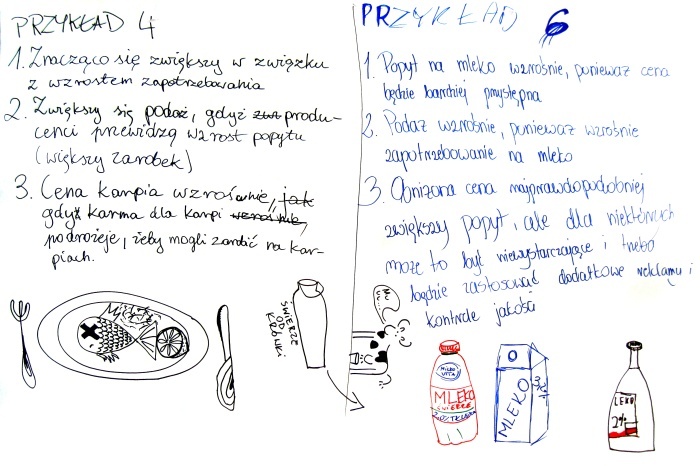 PRZYKŁAD 4
1. Znacząco się zwiększy w związku
z wzrostem zapotrzebowania
2. Zwiększy się podaż, gdyż produ-
cenci przewidzą wzrost popytu
(większy zarobek)
3. Cena karpia wzrośnie,
gdyż karma dla karpi
podrożeje, żeby mogli zarobić na kar-
piach.
ŚWIEŻE
OD
KRÓWKI
PRZYKŁAD 6
1. Popyt na mleko wzrośnie, ponieważ cena
będzie bardziej przystępna
2. Podaż wzrośnie, ponieważ wzrośnie
zapotrzebowanie na mleko
3. Obniżona cena najprawdopodobniej
zwiększy popyt, ale dla niektórych
może to być niewystarczające i trzeba
będzie zastosować dodatkowe reklamy i
kontrole jakości
MLEKO
ŚWIEŻE
MLEKO
2%